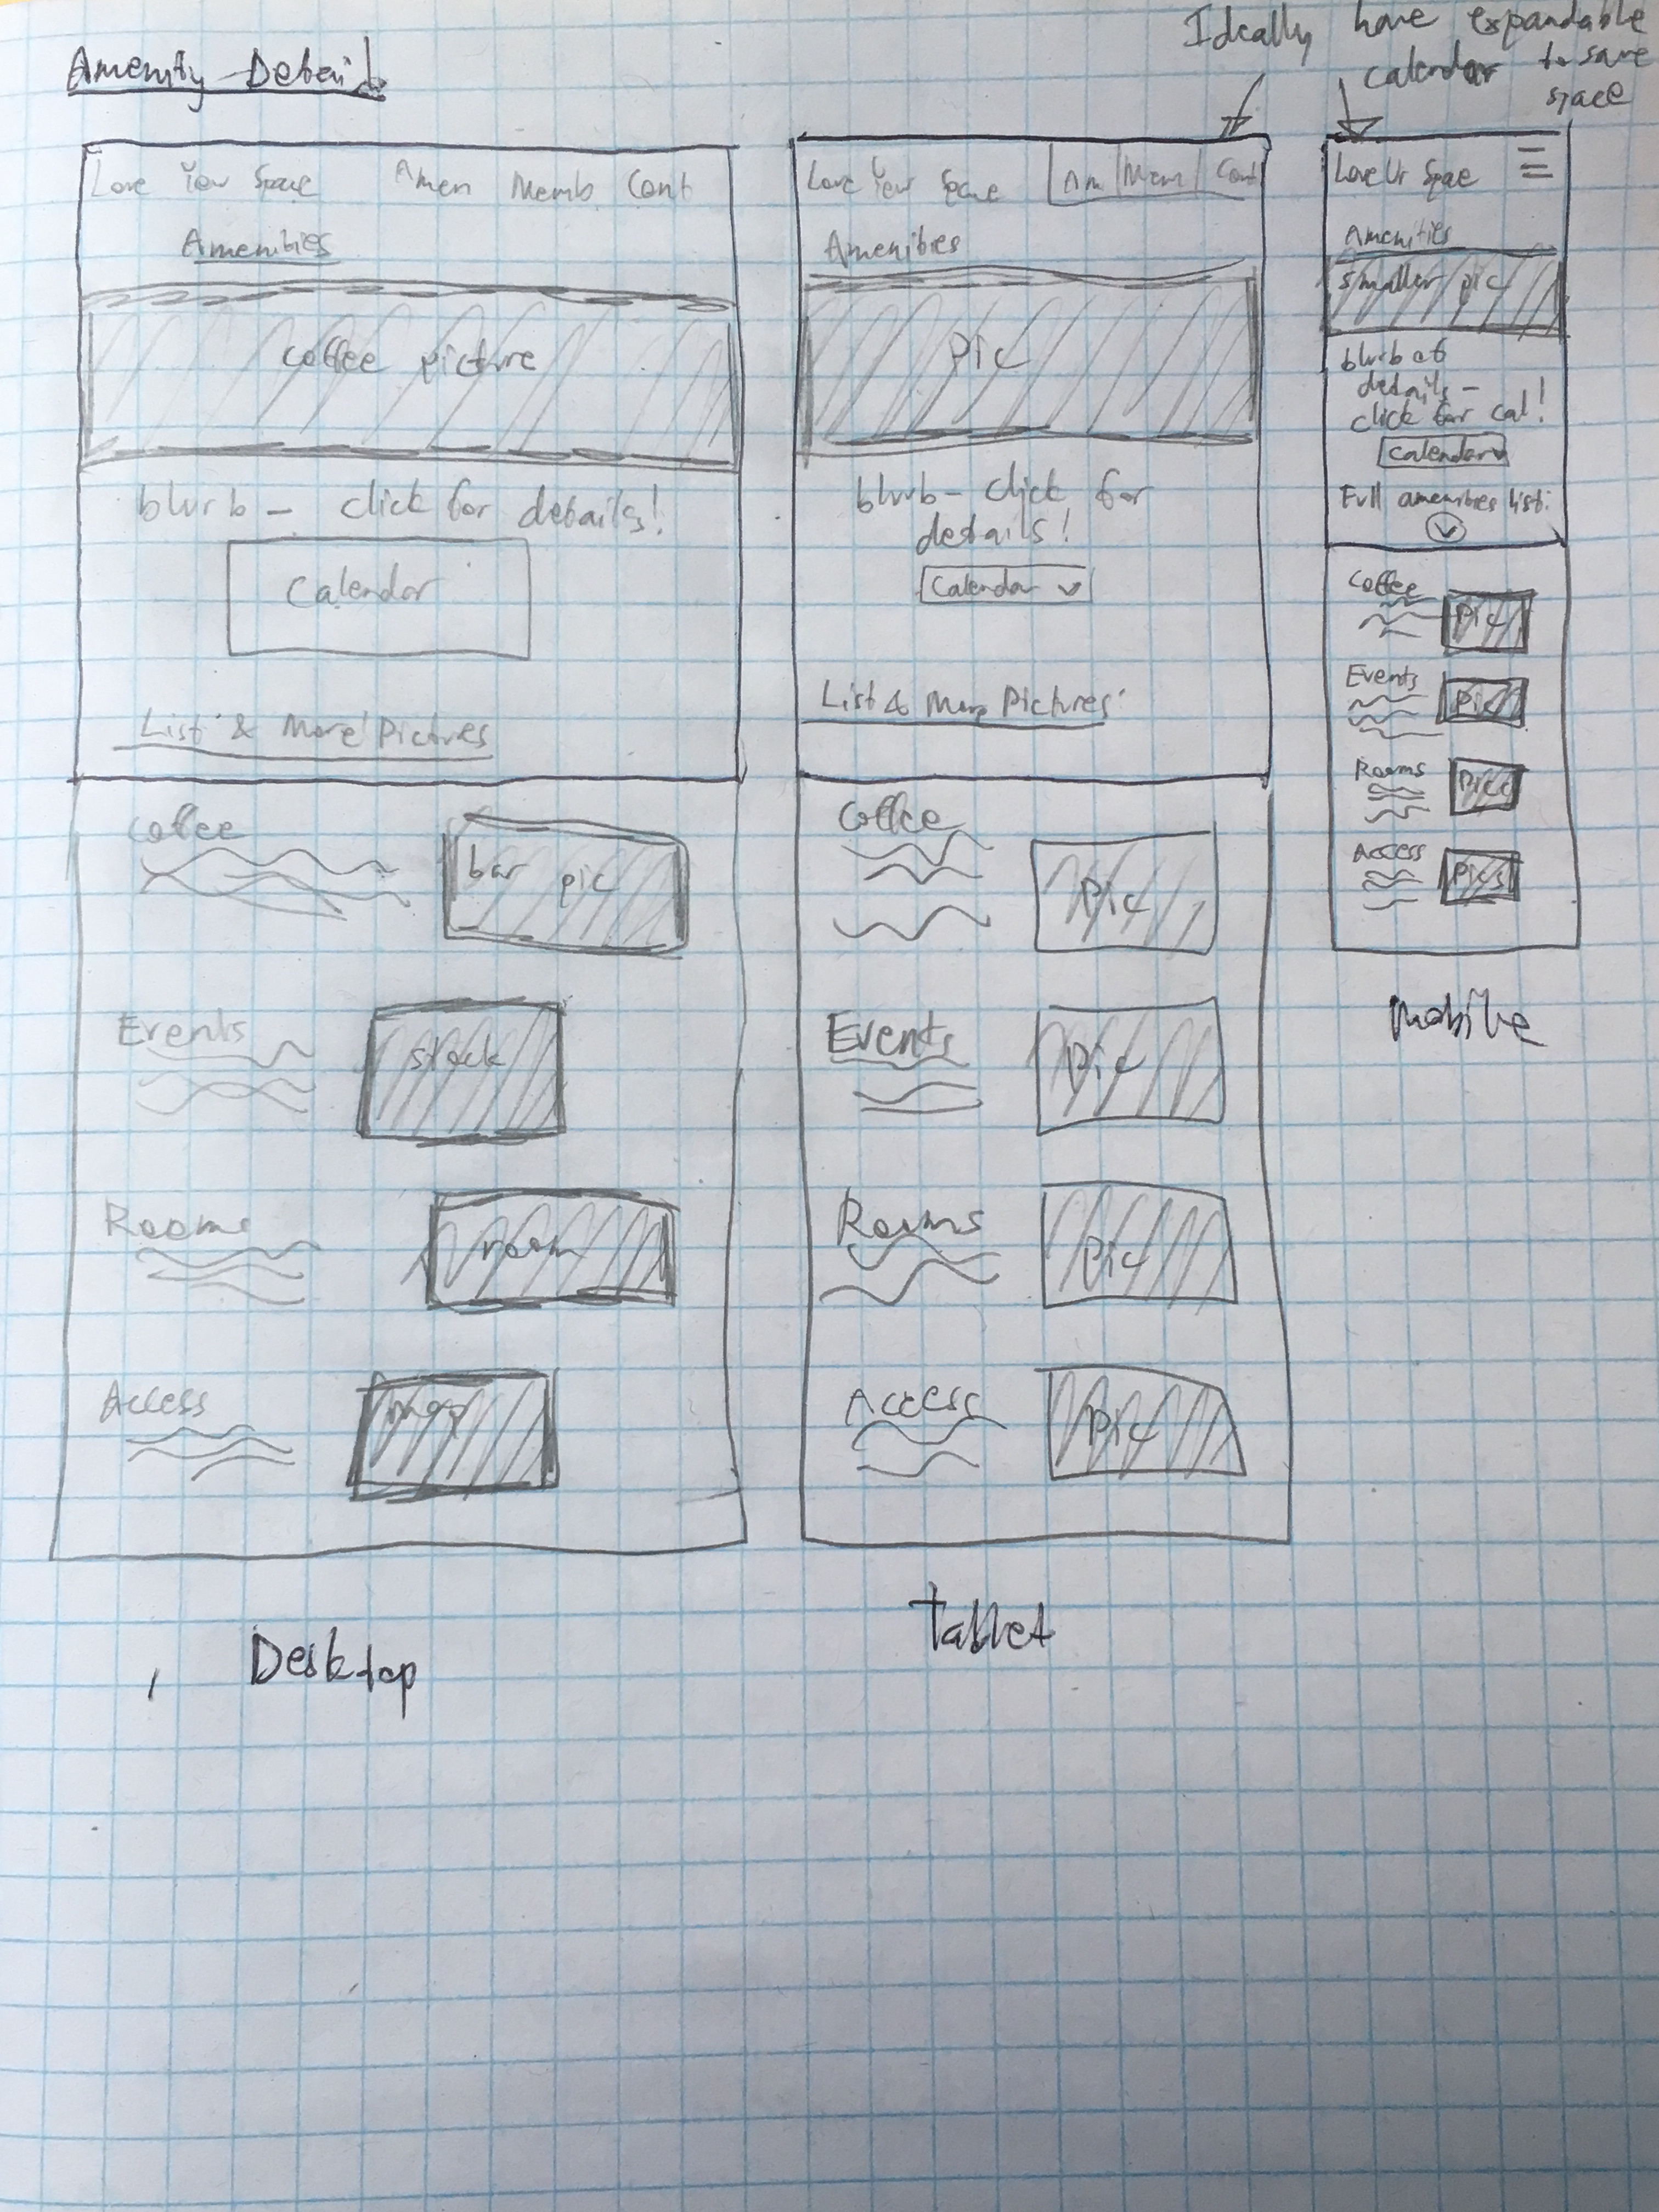 Amenity Details
Ideally have expandable
calendar to save
space
Love Your Space Amen Memb Cont
Amenities
coffee picture
blurb - click for details!
Calendar
List & More Pictures
Coffee
bar pic
Events
stock
Rooms
room
Access
map
Desktop
Love Your Space Am Mem Cont
Amenities
Pic
blurb - click for
details!
Calendar
List & More Pictures
Coffee
Pic
Events
Pic
Rooms
Pic
Access
Pic
Tablet
Love Ur Space
Amenities
smaller pic
blurb of
details -
click for cal!
Calendar
Full amenities list:
Coffee
Pic
Events
Pic
Rooms
Access
Pics
Mobile